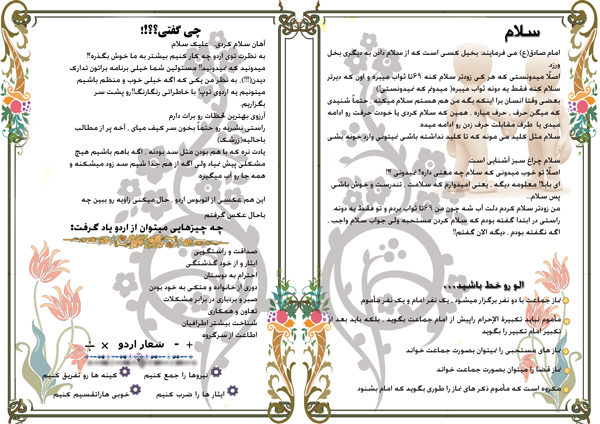 سلام
امام صادق(ع) می فرمایند: بخیل کسی است که از سلام دادن به دیگری بخل
ورزد
اصلا میدونستی که هر کی زودتر سلام کنه ۶۹تا ثواب میبره و اون که دیرتر
سلام کنه فقط یه دونه ثواب میبره( میدونم که نمیدونستی)
بعضی وقتا انسان برا اینکه بگه من هم هستم سلام میکنه . حتماً شنیدی
که میگن حرف ، حرف میاره . همین که سلام کردی با خودت حرفت رو ادامه
میدی یا طرف مقابلت حرف زدن رو ادامه میده.
سلام مثل کلید می مونه که تا کلید نداشته باشی نمیتونی وارد خونه بشی
سلام چراغ سبز آشنایی است
اصلا تو خوب میدونی که سلام چه معنی داره؟ نمیدونی ؟!
ای بابا! معلومه دیگه . یعنی امیدوارم که سلامت . تندرست و خوش باشی.
پس سلام..
من زودتر سلام کردم دلت آب شه چون من ۶۹تا ثواب بردم و تو فقط یه دونه.
راستی در ابتدا گفته بودم که سلام کردن مستحبه ولی جواب سلام واجب .
اگه نگفته بودم . دیگه الان گفتم!!
الو رو خط باشید...
نماز جماعت با دو نفر برگزار میشود . یک نفر امام و یک نفر مأموم
مأموم نباید تکبیرة الإحرام راپیش از امام جماعت بگوید . بلکه باید بعد از
امام تکبیر را بگوید
نماز های مستحبی را نمیتوان بصورت جماعت خواند
نماز قضا را میتوان بصورت جماعت خواند
مکروه است که مأموم ذکر های نماز را طوری بگوید که امام بشنود
چی گفتی؟؟؟!!
آهان سلام کردی علیک سلام
به نظرت توی اردو چه کار کنیم بیشتر به ما خوش بگذره؟!
میدونید که نمیدونید!! مسئولین شما خیلی برنامه براتون تدارک
دیدن(!!!). به نظر من یکی که اگه خیلی خوب و منظم باشیم
میتونیم یه اردوی توپ! با خاطراتی رنگارنگ!!رو پشت سر
بگذاریم
آرزوی بهترین لحظات رو برات دارم
راستی نشریه رو حتماً بخون سر کیف میای . آخه پر از مطالب
باحالیه(زرشک)
یادت نره که با هم بودن مثل سد بودنه . اگه باهم باشیم هیچ
مشکلی پیش نمیاد ولی اگه از هم جدا شیم سد زود میشکنه و
همه جا رو آب میگیره
این هم عکسی از اتوبوس اردو . حال میکنی زاویه رو ببین چه
باحال عکس گرفتم
چه چیزهایی میتوان از اردو یاد گرفت:
صداقت و راستگویی
ایثار و از خود گذشتگی
احترام به دوستان
دوری از خانواده و متکی به خود بودن
صبر و بردباری در برابر مشکلات
تعاون و همکاری
شناخت بیشتر اطرافیان
اطاعت از سرگروه
+ - شعار اردو × ÷
نیروها را جمع کنیم
کینه ها رو تفریق کنیم
ایثار ها را ضرب کنیم
خوبی هاراتقسیم کنیم